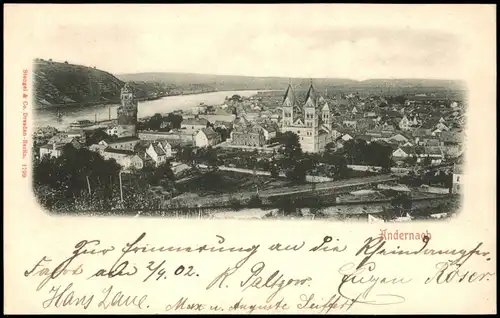 Stengel & Co. Dresden-Berlin. 1799
Andernach
Zur Erinnerung an die Rheindampfer
am 2/9. 02. K. Palzow. Eugen Röser
Hans Zaue. Max u. Auguste Seiffert